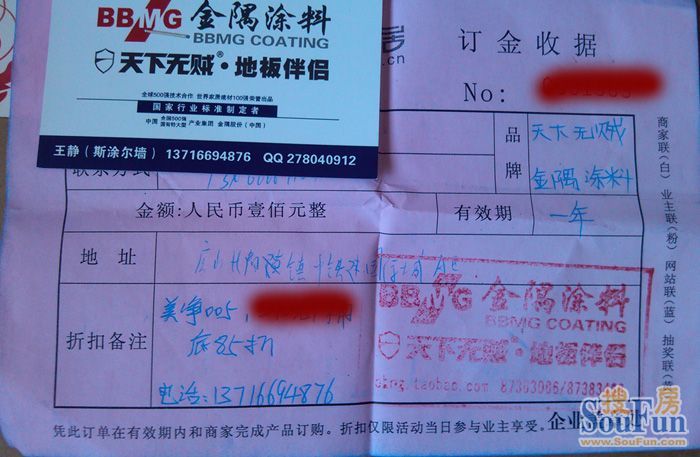 BBMG 金隅涂料
BBMG COATING
天下无贼®·地板伴侣
全球500强技术合作 世界家居建材100强荣誉出品
国家行业标准制定者
中国 全国500强 国有特大型 产业集团 金隅股份(中国)
王静(斯涂尔墙) 13716694876 QQ 278040912
.cn
订金收据
No:
联系方式
品牌
天下无贼
金隅涂料
金额:人民币壹佰元整
有效期
一年
地址
折扣备注
美净005
底85折
电话:13716694876
BBMG 金隅涂料
BBMG COATING
天下无贼®·地板伴侣
.taobao.com
凭此订单在有效期内和商家完成产品订购。折扣仅限活动当日参与业主享受。
企业
商家联(白) 业主联(粉) 网站联(蓝) 抽奖联
搜房
SouFun
www.SouFun.com